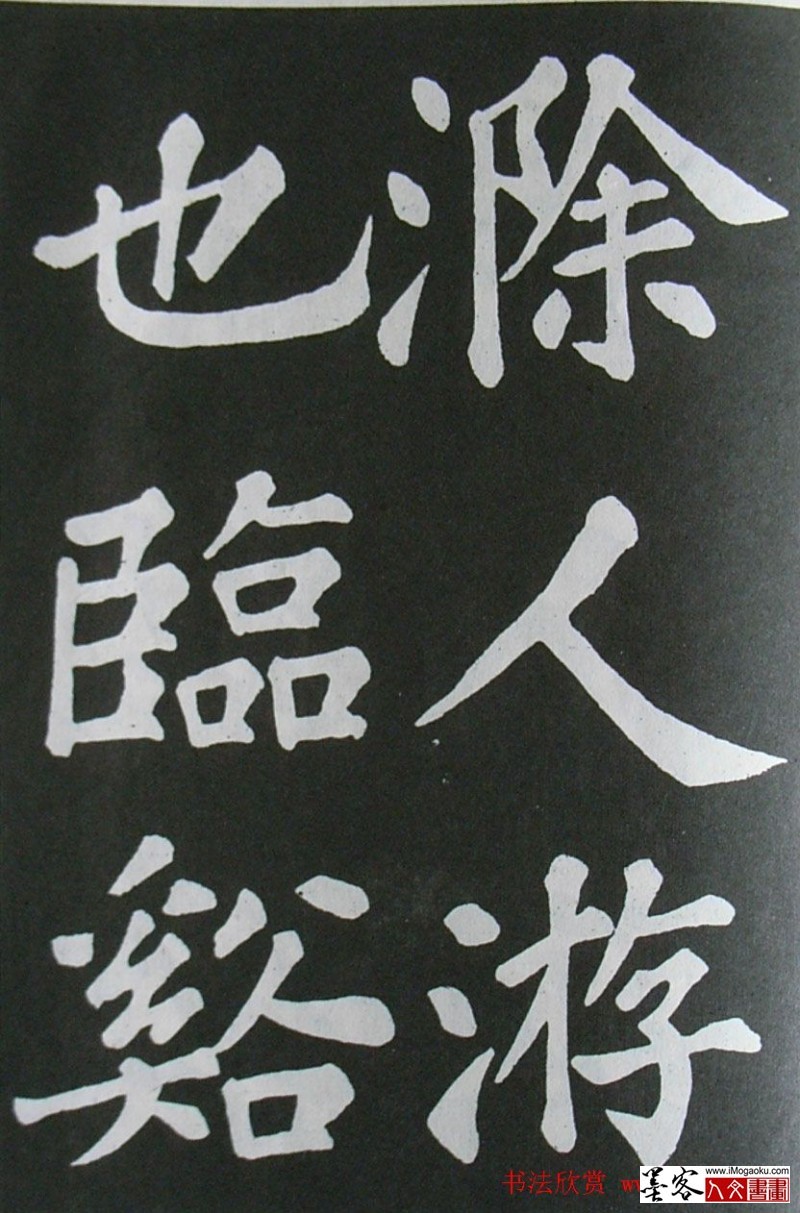 滁人游
也臨谿
书法欣赏
墨客
www.iMogaoku.com
人文書畫